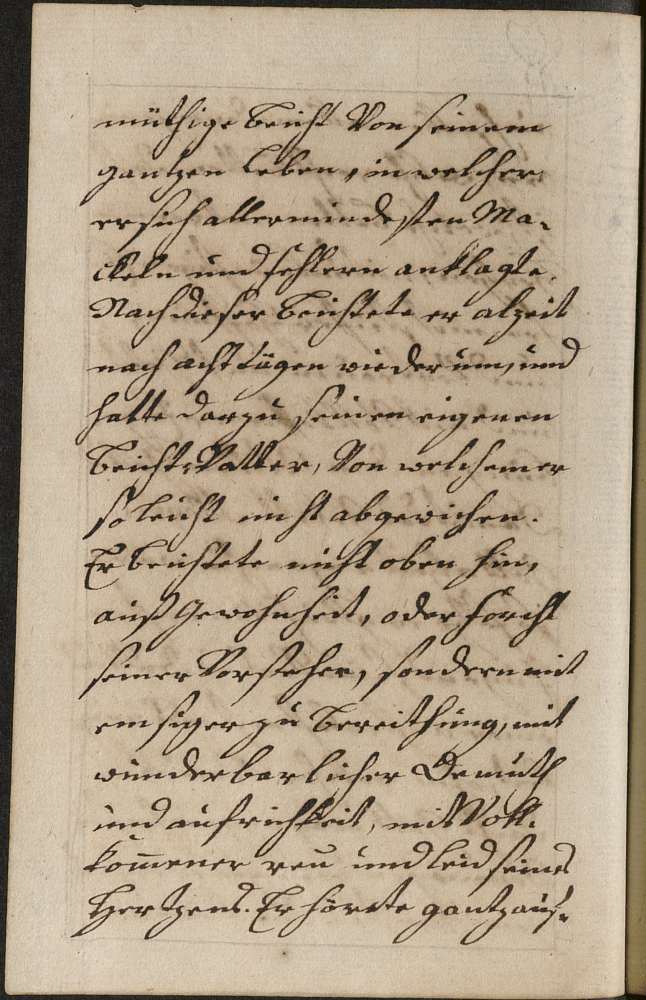 müthige beicht Von seinem
gantzen Leben, in welcher
er sich allermindesten Ma-
ckeln und fehlern anklagte.
Nach dieser beichtete er alzeit
nach acht tägen wiederum, und
hatte darzu seinen eigenen
beicht-Vatter, Von welchem er
so leicht nicht abgewichen.
Er beichtete nicht oben hin,
auß Gewohnheit, oder forcht
seiner Vorsteher, sondern mit
emsiger zu bereithung, mit
wunderbarlicher Demuth
und aufrichtkeit, mit Voll-
kommener reu und leid seines
Hertzens. Er hörete gantz auf-